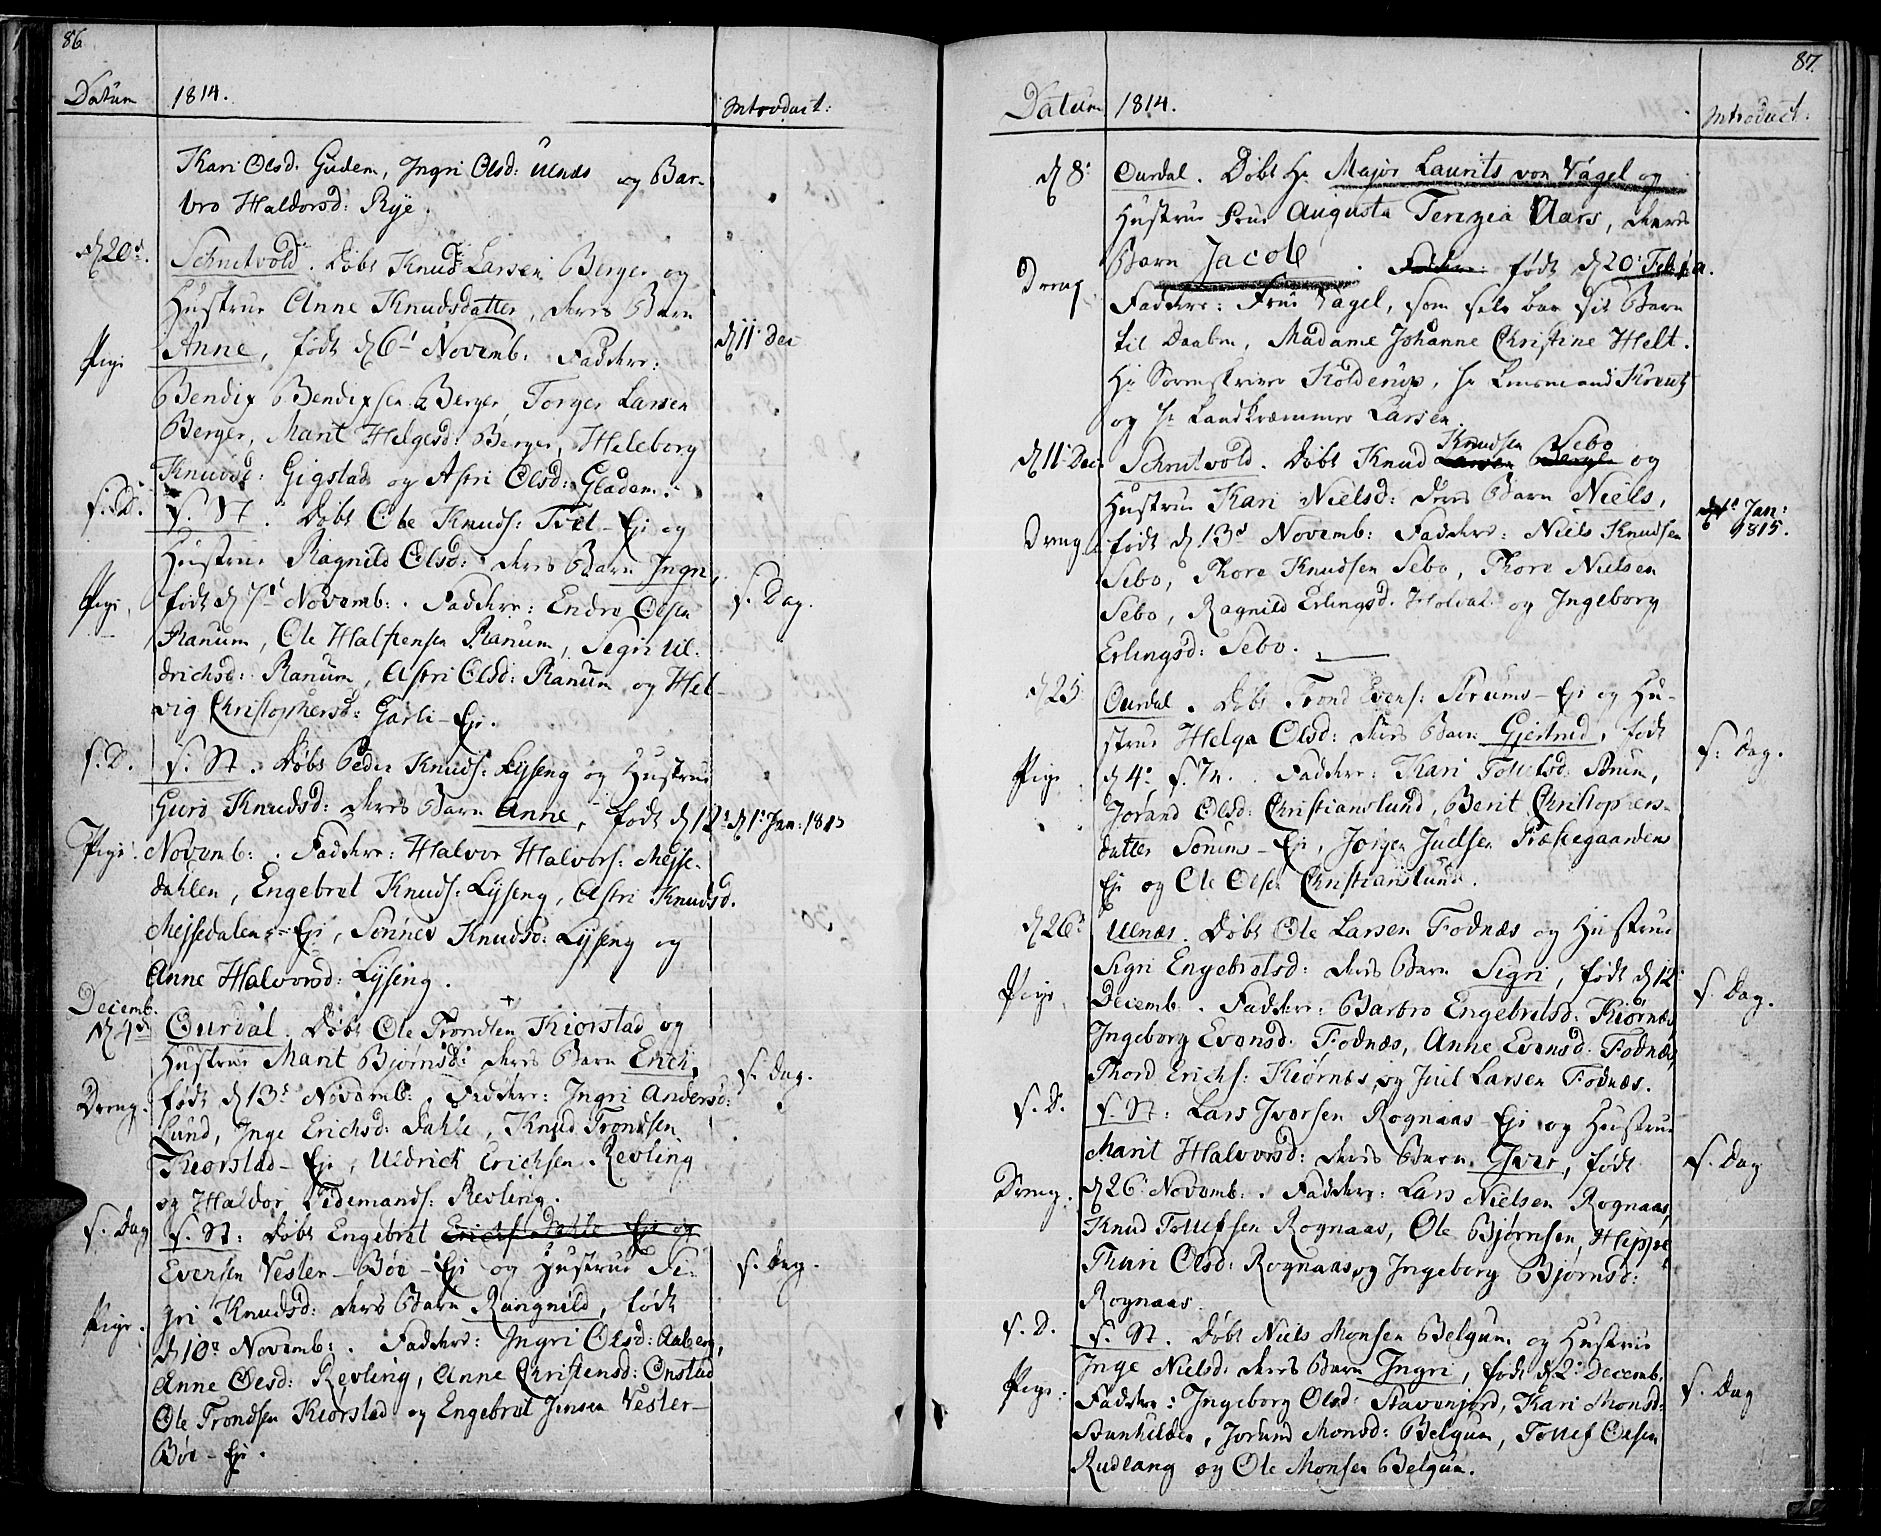 86.
Datum 1814. Introduct:
Kari Olsd: Guden, Ingri Olsd: Ulnæs og Bar-
bro Haldorsd: Rye.
d. 20d. Schutvold. Døbt Knud Larsen Berger og
Hustrue Anne Knudsdatter, deres Barn
Pige Anne, født d. 6t Novemb: Faddere: d. 11t Dec
Bendix Bendixsen Berger, Torger Larsen
Berger, Marit Helgesd: Berger, Heleborg
Knudsd: Gigstad og Astri Olsd: Gladem.
S. D. S. St. Døbt Ole Knuds: Tvet-Eje og
Hustrue Ragnild Olsd: deres Barn Ingri,
Pige, født d. 7d Novemb:. Faddere: Endre Olsen S. Dag.
Ranum, Ole Halstensen Ranum, Segri Ul-
drichsd: Ranum, Astri Olsd: Ranum og Hel-
vig Christophersd: Garli-Eje.
S. D. S. St. Døbt Peder Knuds: Lysseng og Hustrue
Guro Knudsd: deres Barn Anne, født d. 12: d. 1t Jan: 1815
Pige. Novemb:. Faddere: Halvor Halvors: Mejsse-
dahlen, Engebret Knuds: Lysseng, Astri Knudsd.
Mejssedalens-Eje, Sønnev Knudsd: Lysseng og
Anne Halvorsd: Lysseng.
Decemb.
d. 4d Ourdal. Døbt Ole Trondsen Kiorstad og
Hustrue Marit Bjørnsd: deres Barn Erich, S. Dag.
Dreng. født d. 13d Novemb:. Faddere: Ingri Andersd:
Lund, Inge Erichsd: Dahle, Knud Trondsen
Kiorstad-Eje, Uldrich Erichsen Revling
og Haldor Tidemands: Revling.
S. Dag S. St: Døbt Engebret Erichs: Dahle Eje og
Evensen Vesler-Bøe-Eje og Hustrue Si- S. Dag.
gri Knudsd: deres Barn Rangnild, født
Pige. d. 10d Novemb:. Faddere: Ingri Olsd: Aaberg,
Anne Olsd: Revling, Anne Christensd: Onstad
Ole Trondsen Kiorstad og Engebret Jensen Vesler-
Bøe-Eje.
87.
Datum 1814. Introduct:
d. 8: Ourdal. Døbt Hr Major Laurits von Vagel og
Hustrue Frue Augusta Terezia Aars, deres
Dreng Barn Jacob. Faddere: født d. 20: Febr:
Faddere: Frue Vagel, som selv bar sit Barn
til Daaben, Madame Johanne Christine Helt.
Hr Sorenskriver Kolderup, Hr Lensmand Kreutz
og Hr Landkræmmer Larsen.
Knudsen Sebo
d. 11t Dec. Schutvold. Døbt Knud Larsen Berger og
Hustrue Kari Nielsd: deres Barn Niels, d. 1t Jan: 1815.
Dreng født d. 13d Novemb: Faddere: Niels Knudsen
Sebo, Thore Knudsen Sebo, Thore Nielsen
Sebo, Ragnild Erlingsd. Holdal og Ingeborg
Erlingsd: Sebo.
d. 25 Ourdal. Døbt Trond Evens: Sørums-Eje og Hu-
strue Helga Olsd: deres Barn Gjertrud, født S. Dag.
Pige d. 4d S. M. Faddere: Kari Tollefsd: Bruen,
Jorand Olsd: Christianslund, Berit Christophers-
datter Sørums-Eje, Jørgen Juelsen Præstegaardens
Eje og Ole Olsen Christianslund.
d. 26d Ulnæs. Døbt Ole Larsen Fodnæs og Hustrue
Sigri Engebretsd: deres Barn Sigri, født d. 12t
Pige Decemb. Faddere: Barbro Engebretsd: Kiørnæs, S. Dag.
Ingeborg Evensd. Fodnæs, Anne Evensd: Fodnæs,
Thord Erichs: Kiørnæs og Juel Larsen Fodnæs.
S. D. S. St: Lars Iversen Rognaas Eje og Hustrue
Marit Halvorsd: deres Barn Iver, født S. Dag
Dreng. d. 26t Novemb:. Faddere: Lars Nielsen Rognaas,
Knud Tollefsen Rognaas, Ole Bjørnsen Hippe,
Thuri Olsd: Rognaas og Ingeborg Bjørnsd:
Rognaas.
S. D. S. St. Døbt Niels Monsen Belgum og Hustrue
Inge Nielsd: deres Barn Ingri, født d. 2t Decemb.
Pige. Faddere: Ingeborg Olsd: Stavenjord, Kari Monsd: S. Dag
Brunhilden, Jorund Monsd: Belgum, Tollef Olsen
Rudlang og Ole Monsen Belgum.